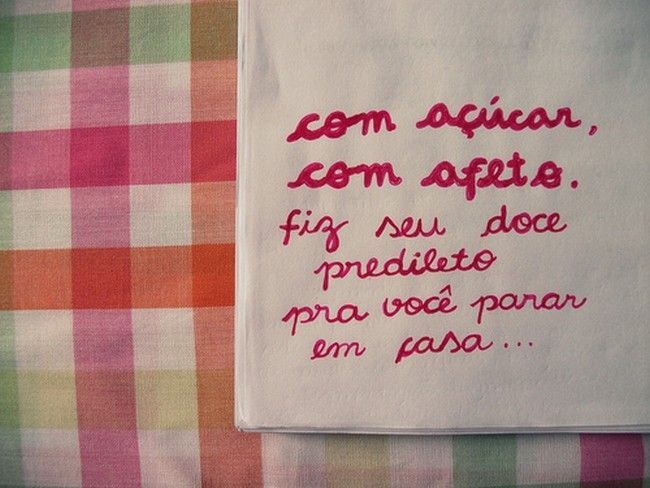 com açúcar,
com afeto.
fiz seu doce
predileto
pra você parar
em casa...